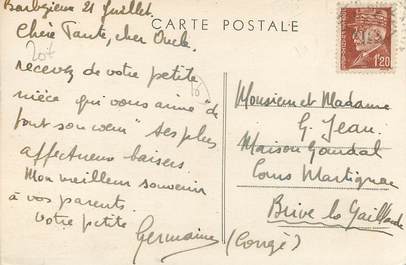 Barbezieux 21 Juillet.
CARTE POSTALE
Chère Tante, cher Oncle.
recevez de votre petite
nièce qui vous aime "de
tout son cœur" ses plus
affectueux baisers.
Mon meilleur souvenir
à vos parents.
Votre petite
Germaine
1f20
Monsieur et Madame
G. Jean.
Maison Goudal
Cours Martignac
Brive la Gaillarde
(Corrèze)